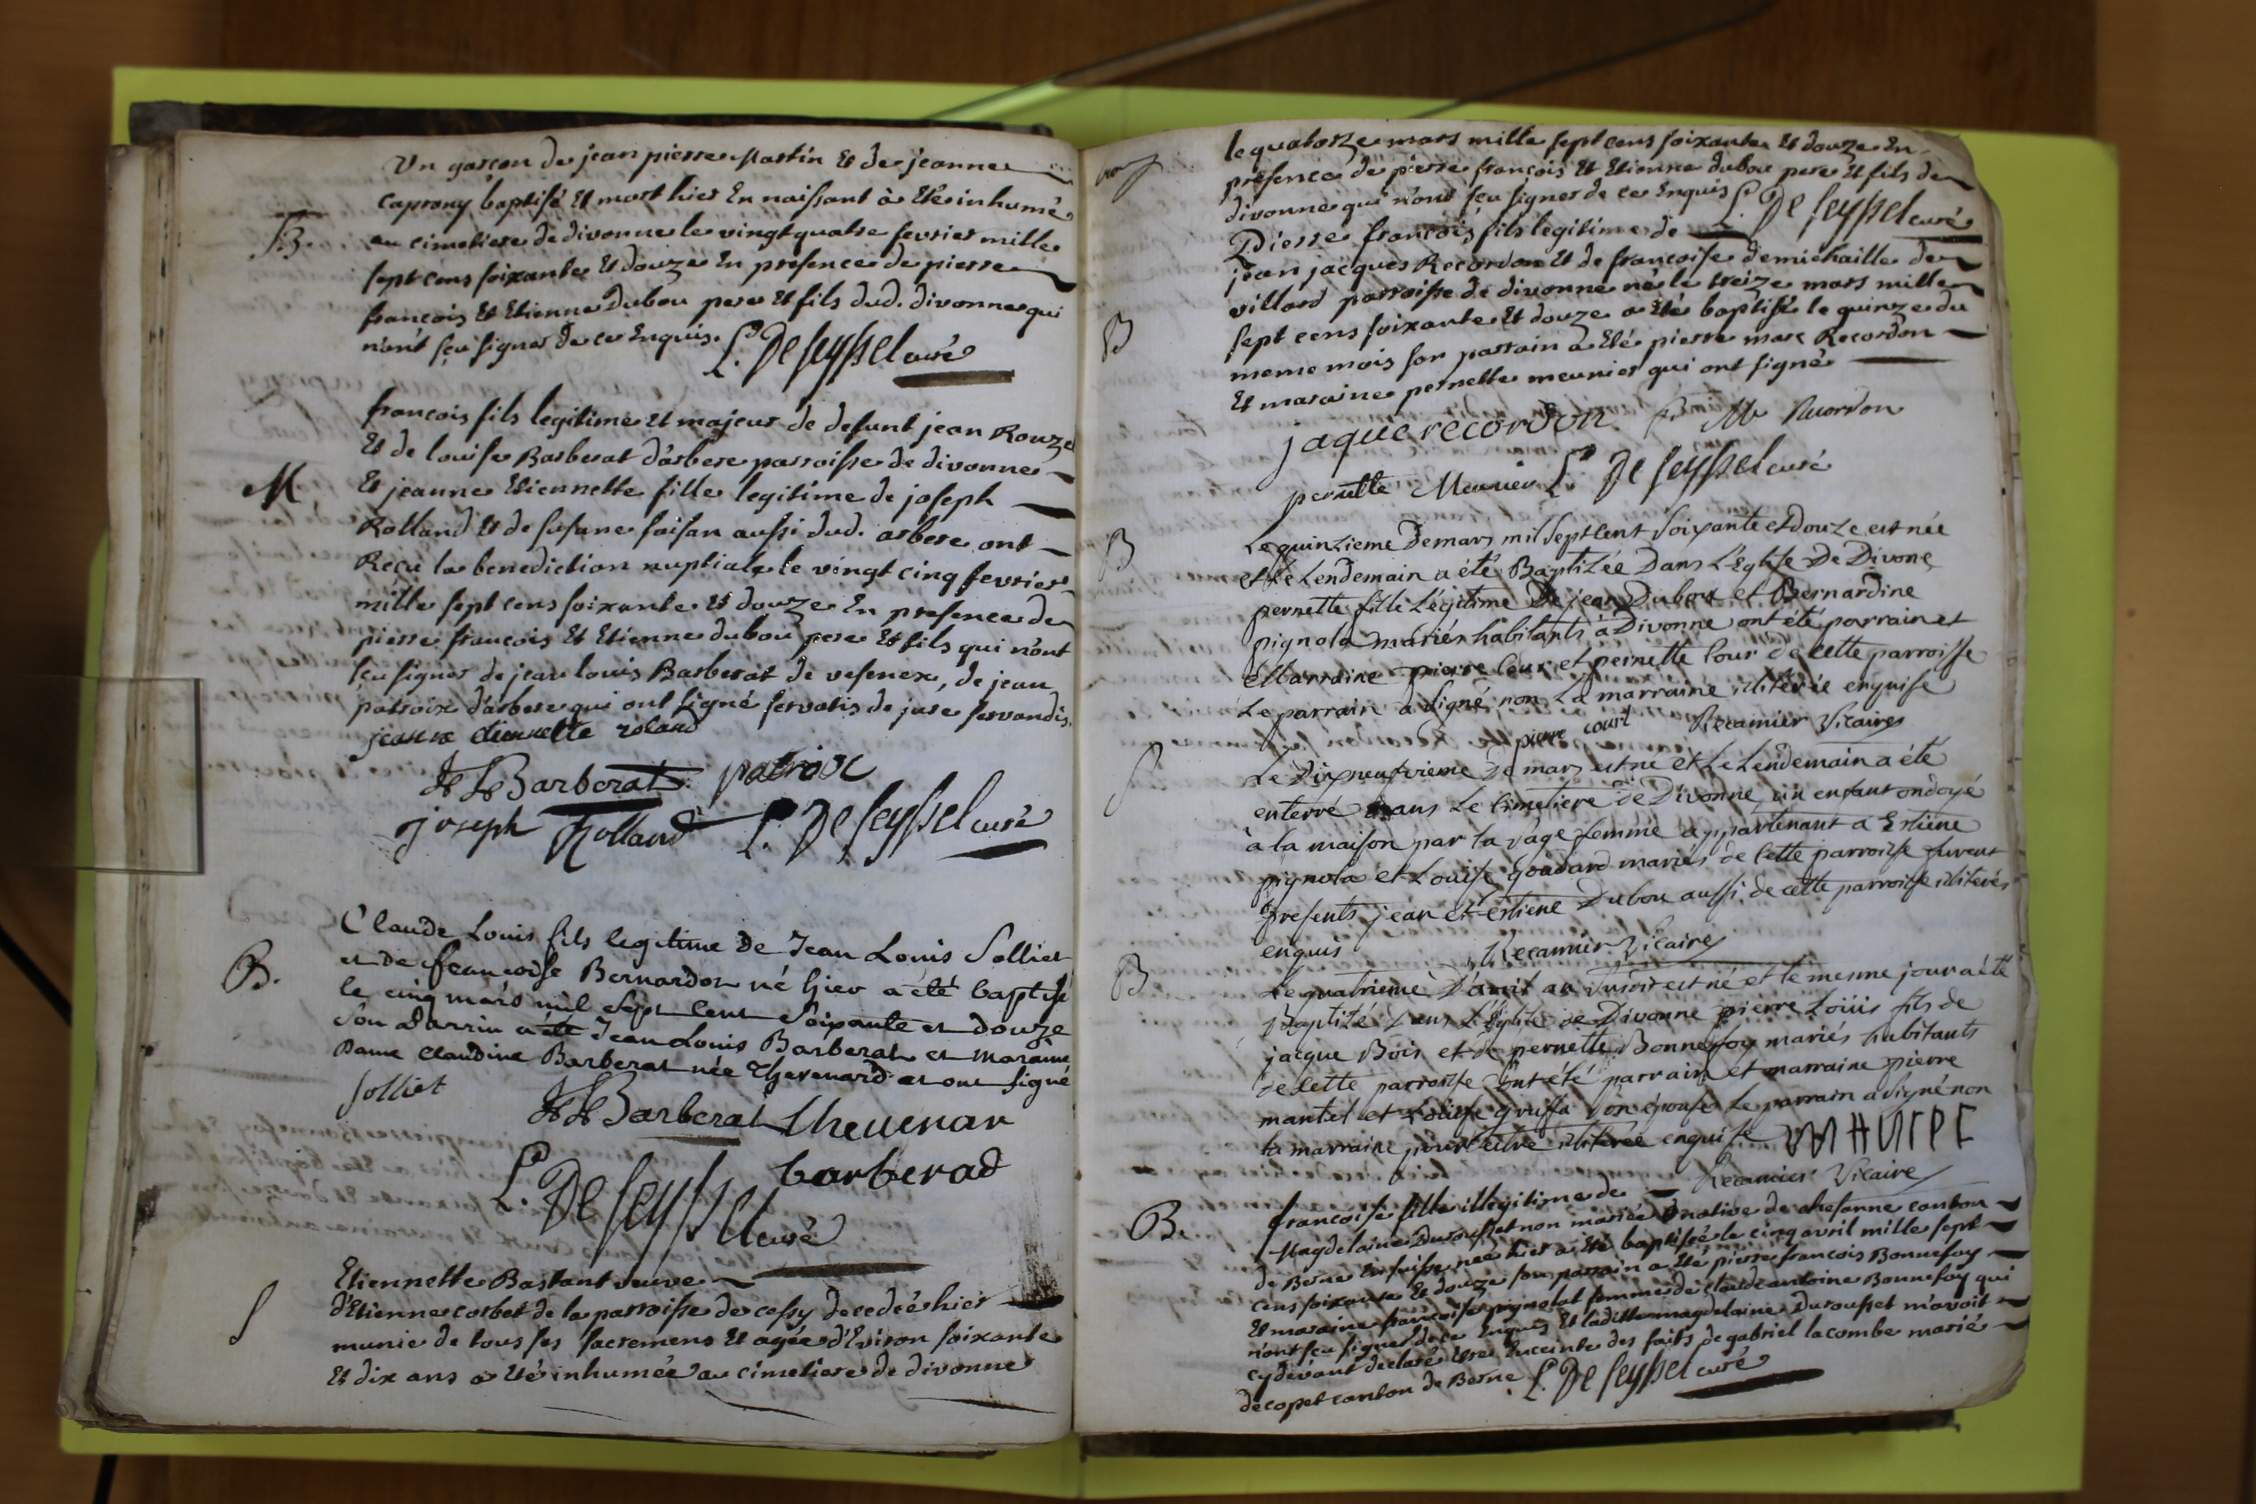 Un garçon de jean pierre Martin Et de jeanne
caprony baptisé Et mort hier En naissant à Eté inhumé
B.
au cimetiere de divonne le vingt quatre fevrier mille
sept cens soixante Et douze En presence de pierre
francois Et Etienne dubou pere Et fils dud. divonne qui
n'ont sçu signer de ce Enquis. L. De Seyssel curé
francois fils legitime Et majeur de defunt jean Rouze
Et de louise Barberat d'arbere parroisse de divonne
M
Et jeanne Etiennette fille legitime de joseph
Rolland Et de susane faisan aussi dud. arbere ont
Reçu la benediction nuptiale le vingt cinq fevrier
mille sept cens soixante Et douze En presence de
pierre francois Et Etienne dubou pere Et fils qui n'ont
sçu signer de jean louis Barberat de vesenex, de jean
patroix d'arbere qui ont signé servatis de jure servandis.
jeanne etiennette roland
Barberat patroix
joseph Rolland L. De Seyssel curé
Claude Louis fils legitime de Jean Louis Solliet
B.
et de francoise Bernardon né hier a été baptisé
le cinq mars mil sept cent soixante et douze
son parrin a été Jean Louis Barberat et maraine
Dame Claudine Barberat née Thevenard et ont signé
Solliet
Barberat thevenar
barberad
L. De Seyssel curé
Etiennette Bastant veuve
d'Etienne corbet de la parroisse de cessy decedée hier
S
munie de tous ses sacremens Et agée d'Eviron soixante
Et dix ans a Eté inhumée au cimetiere de divonne
le quatorze mars mille sept cens soixante Et douze En
presence de pierre françois Et Etienne dubou pere Et fils de
divonne qui n'ont sçu signer de ce Enquis L. De Seyssel curé
Pierre francois fils legitime de
jean jacques Recordon Et de francoise demichaille de
villard parroisse de divonne né le treize mars mille
B
sept cens soixante Et douze a Eté baptisé le quinze du
meme mois son parrain a Eté pierre marc Recordon
Et maraine pernette meunier qui ont signé
jaque recordon Recordon
pernette Meunier L. De Seyssel curé
B
Le quinzieme de mars mil sept cent soixante et douze est née
et le Lendemain a été Baptizée dans L'Eglise de Divone
pernette fille Légitime de jean Dubout et Bernardine
pignola mariés habitants à Divonne ont été parrain et
Marraine pierre cour et pernette cour de cette parroisse
Le parrain a signé non la marraine illiterée enquise
pierre court Recamier Vicaire
S
Le Dixneufvieme de mars est né et Le Lendemain a été
enterré dans le cimetiere de Divonne un enfant ondoyé
à la maison par la sage femme appartenant à Estiene
pignola et Louise Godard mariés de cette parroisse furent
presents jean et Estiene Dubou aussi de cette parroisse illiterés
enquis Recamier Vicaire
B
Le quatrieme d'avril an susdit est né et le mesme jour a été
Baptizé dans L'Eglise de Divonne pierre Loüis fils de
jacque Bois et de pernette Bonnefoy mariés habitants
de cette parroisse ont été parrain et marraine pierre
mantel et Louise gruffa son épouse Le parrain a signé non
la marraine pour être illiterée enquise
Recamier Vicaire
B.
francoise fille illegitime de
Magdelaine Durousset non mariée native de chesanne canton
de Berne En suisse née hier a Eté baptisée le cinq avril mille sept
cens soixante Et douze son parrain a Eté pierre francois Bonnefoy
Et maraine francoise pignolat femme de claude antoine Bonnefoy qui
n'ont sçu signer de ce Enquis Et ladite magdelaine Durousset n'avoit
cydevant declaré Etre Enceinte des faits de gabriel lacombe marié
de copet canton de Berne. L. De Seyssel curé